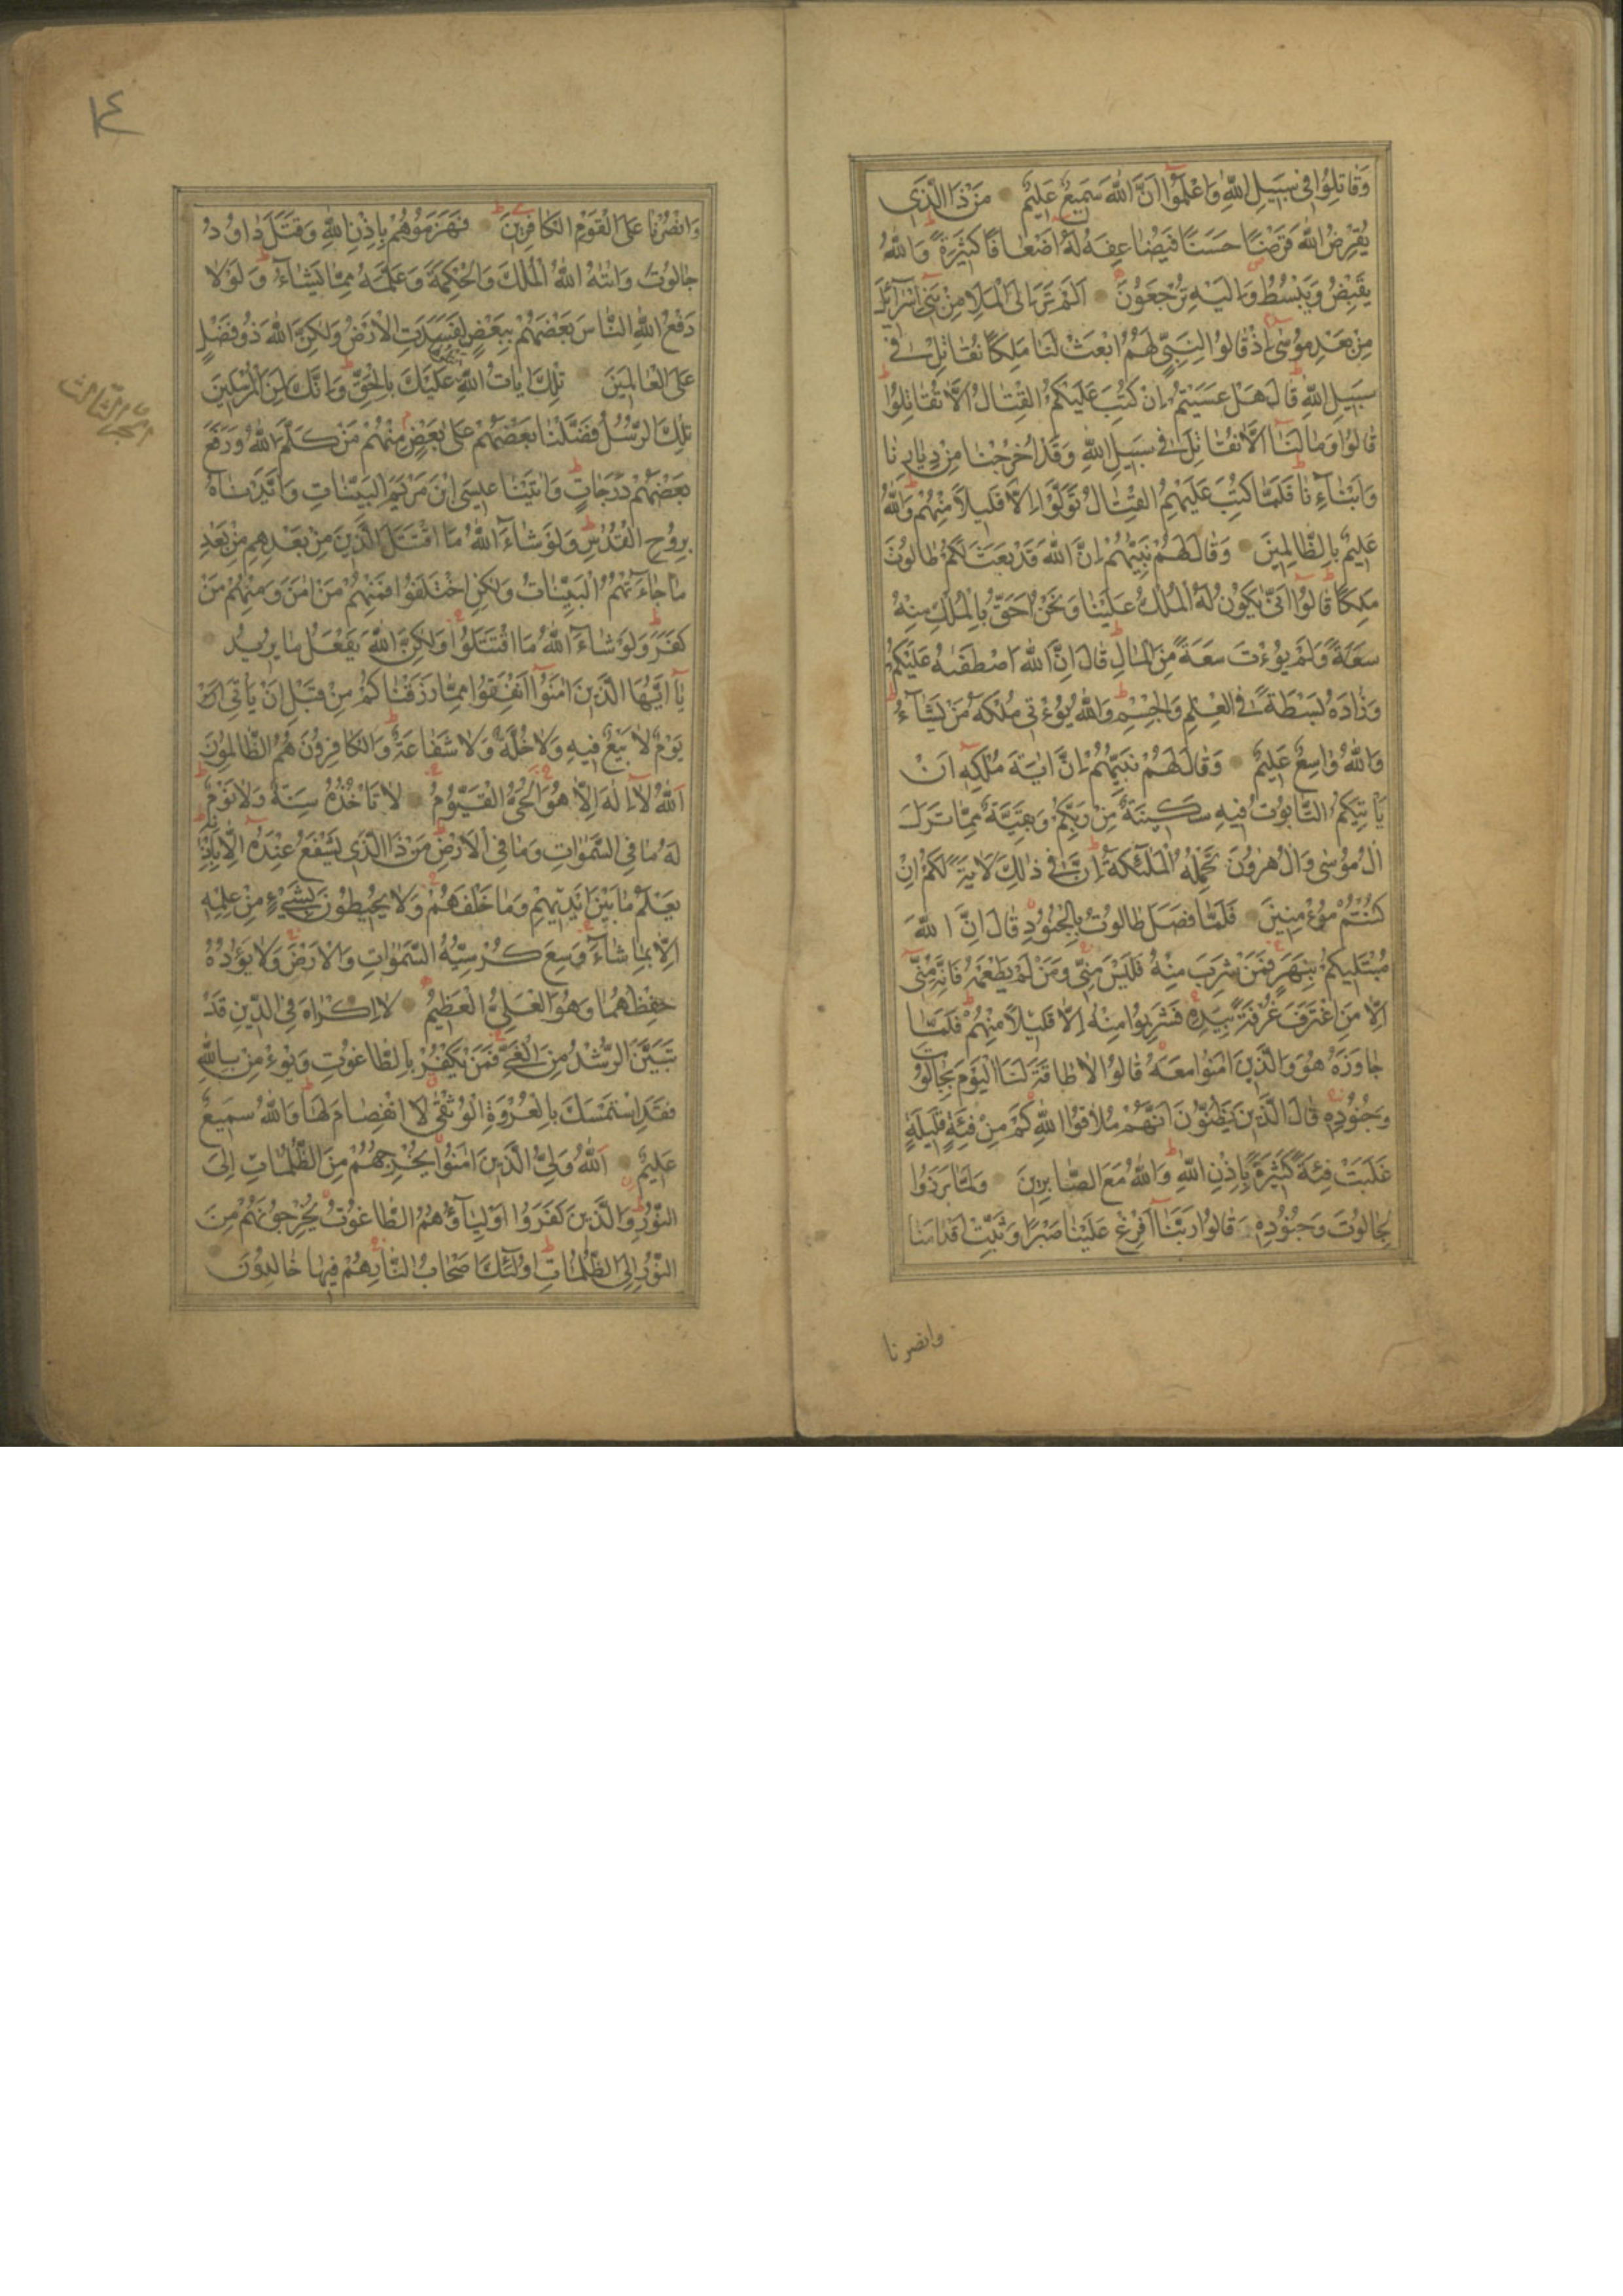 وَقَاتِلُوا فِي سَبِيلِ اللَّهِ وَاعْلَمُوا أَنَّ اللَّهَ سَمِيعٌ عَلِيمٌ مَنْ ذَا الَّذِي
يُقْرِضُ اللَّهَ قَرْضًا حَسَنًا فَيُضَاعِفَهُ لَهُ أَضْعَافًا كَثِيرَةً وَاللَّهُ
يَقْبِضُ وَيَبْسُطُ وَإِلَيْهِ تُرْجَعُونَ أَلَمْ تَرَ إِلَى الْمَلَإِ مِنْ بَنِي إِسْرَآئِلَ
مِنْ بَعْدِ مُوسَى إِذْ قَالُوا لِنَبِيٍّ لَهُمُ ابْعَثْ لَنَا مَلِكًا نُقَاتِلْ فِي
سَبِيلِ اللَّهِ قَالَ هَلْ عَسَيْتُمْ إِنْ كُتِبَ عَلَيْكُمُ الْقِتَالُ أَلَّا تُقَاتِلُوا
قَالُوا وَمَا لَنَا أَلَّا نُقَاتِلَ فِي سَبِيلِ اللَّهِ وَقَدْ أُخْرِجْنَا مِنْ دِيَارِنَا
وَأَبْنَاءِنَا فَلَمَّا كُتِبَ عَلَيْهِمُ الْقِتَالُ تَوَلَّوْا إِلَّا قَلِيلًا مِنْهُمْ وَاللَّهُ
عَلِيمٌ بِالظَّالِمِينَ وَقَالَ لَهُمْ نَبِيُّهُمْ إِنَّ اللَّهَ قَدْ بَعَثَ لَكُمْ طَالُوتَ
مَلِكًا قَالُوا أَنَّى يَكُونُ لَهُ الْمُلْكُ عَلَيْنَا وَنَحْنُ أَحَقُّ بِالْمُلْكِ مِنْهُ
سَعَةً وَلَمْ يُؤْتَ سَعَةً مِنَ الْمَالِ قَالَ إِنَّ اللَّهَ اصْطَفٰىهُ عَلَيْكُمْ
وَزَادَهُ بَسْطَةً فِي الْعِلْمِ وَالْجِسْمِ وَاللَّهُ يُؤْتِي مُلْكَهُ مَنْ يَشَآءُ
وَاللَّهُ وَاسِعٌ عَلِيمٌ وَقَالَ لَهُمْ نَبِيُّهُمْ إِنَّ ايَةَ مُلْكِهِ أَنْ
يَأْتِيَكُمُ التَّابُوتُ فِيهِ سَكِينَةٌ مِنْ رَبِّكُمْ وَبَقِيَّةٌ مِمَّا تَرَكَ
الُ مُوسَى وَالُ هٰرُونَ تَحْمِلُهُ الْمَلٰئِكَةُ إِنَّ فِي ذٰلِكَ لَايَةً لَكُمْ إِنْ
كُنْتُمْ مُؤْمِنِينَ فَلَمَّا فَصَلَ طَالُوتُ بِالْجُنُودِ قَالَ إِنَّ اللَّهَ
مُبْتَلِيكُمْ بِنَهَرٍ فَمَنْ شَرِبَ مِنْهُ فَلَيْسَ مِنِّي وَمَنْ لَمْ يَطْعَمْهُ فَإِنَّهُ مِنِّي
إِلَّا مَنِ اغْتَرَفَ غُرْفَةً بِيَدِهِ فَشَرِبُوا مِنْهُ إِلَّا قَلِيلًا مِنْهُمْ فَلَمَّا
جَاوَزَهُ هُوَ وَالَّذِينَ امَنُوا مَعَهُ قَالُوا لَا طَاقَةَ لَنَا الْيَوْمَ بِجَالُوتَ
وَجُنُودِهِ قَالَ الَّذِينَ يَظُنُّونَ أَنَّهُمْ مُلَاقُوا اللَّهِ كَمْ مِنْ فِئَةٍ قَلِيلَةٍ
غَلَبَتْ فِئَةً كَثِيرَةً بِإِذْنِ اللَّهِ وَاللَّهُ مَعَ الصَّابِرِينَ وَلَمَّا بَرَزُوا
لِجَالُوتَ وَجُنُودِهِ قَالُوا رَبَّنَا أَفْرِغْ عَلَيْنَا صَبْرًا وَثَبِّتْ أَقْدَامَنَا
وانصرنا
١٤
وَانْصُرْنَا عَلَى الْقَوْمِ الْكَافِرِينَ فَهَزَمُوهُمْ بِإِذْنِ اللَّهِ وَقَتَلَ دَاوُدُ
جَالُوتَ وَاتٰىهُ اللَّهُ الْمُلْكَ وَالْحِكْمَةَ وَعَلَّمَهُ مِمَّا يَشَآءُ وَلَوْلَا
دَفْعُ اللَّهِ النَّاسَ بَعْضَهُمْ بِبَعْضٍ لَفَسَدَتِ الْأَرْضُ وَلَكِنَّ اللَّهَ ذُو فَضْلٍ
عَلَى الْعَالَمِينَ تِلْكَ ايَاتُ اللَّهِ نَتْلُوهَا عَلَيْكَ بِالْحَقِّ وَإِنَّكَ لَمِنَ الْمُرْسَلِينَ
تِلْكَ الرُّسُلُ فَضَّلْنَا بَعْضَهُمْ عَلَى بَعْضٍ مِنْهُمْ مَنْ كَلَّمَ اللَّهُ وَرَفَعَ
بَعْضَهُمْ دَرَجَاتٍ وَاتَيْنَا عِيسَى ابْنَ مَرْيَمَ الْبَيِّنَاتِ وَأَيَّدْنَاهُ
بِرُوحِ الْقُدُسِ وَلَوْ شَاءَ اللَّهُ مَا اقْتَتَلَ الَّذِينَ مِنْ بَعْدِهِمْ مِنْ بَعْدِ
مَا جَاءَتْهُمُ الْبَيِّنَاتُ وَلَكِنِ اخْتَلَفُوا فَمِنْهُمْ مَنْ امَنَ وَمِنْهُمْ مَنْ
كَفَرَ وَلَوْ شَاءَ اللَّهُ مَا اقْتَتَلُوا وَلَكِنَّ اللَّهَ يَفْعَلُ مَا يُرِيدُ
يَآ أَيُّهَا الَّذِينَ امَنُوا أَنْفِقُوا مِمَّا رَزَقْنَاكُمْ مِنْ قَبْلِ أَنْ يَأْتِيَ
يَوْمٌ لَا بَيْعٌ فِيهِ وَلَا خُلَّةٌ وَلَا شَفَاعَةٌ وَالْكَافِرُونَ هُمُ الظَّالِمُونَ
اللَّهُ لَآ إِلَهَ إِلَّا هُوَ الْحَيُّ الْقَيُّومُ لَا تَأْخُذُهُ سِنَةٌ وَلَا نَوْمٌ
لَهُ مَا فِي السَّمٰوَاتِ وَمَا فِي الْأَرْضِ مَنْ ذَا الَّذِي يَشْفَعُ عِنْدَهُ إِلَّا بِإِذْنِهِ
يَعْلَمُ مَا بَيْنَ أَيْدِيهِمْ وَمَا خَلْفَهُمْ وَلَا يُحِيطُونَ بِشَيْءٍ مِنْ عِلْمِهِ
إِلَّا بِمَا شَآءَ وَسِعَ كُرْسِيُّهُ السَّمٰوَاتِ وَالْأَرْضَ وَلَا يَؤُدُهُ
حِفْظُهُمَا وَهُوَ الْعَلِيُّ الْعَظِيمُ لَا إِكْرَاهَ فِي الدِّينِ قَدْ
تَبَيَّنَ الرُّشْدُ مِنَ الْغَيِّ فَمَنْ يَكْفُرْ بِالطَّاغُوتِ وَيُؤْمِنْ بِاللَّهِ
فَقَدِ اسْتَمْسَكَ بِالْعُرْوَةِ الْوُثْقَى لَا انْفِصَامَ لَهَا وَاللَّهُ سَمِيعٌ
عَلِيمٌ اللَّهُ وَلِيُّ الَّذِينَ امَنُوا يُخْرِجُهُمْ مِنَ الظُّلُمَاتِ إِلَى
النُّورِ وَالَّذِينَ كَفَرُوا أَوْلِيَآؤُهُمُ الطَّاغُوتُ يُخْرِجُونَهُمْ مِنَ
النُّورِ إِلَى الظُّلُمَاتِ أُولٰئِكَ أَصْحَابُ النَّارِ هُمْ فِيهَا خَالِدُونَ